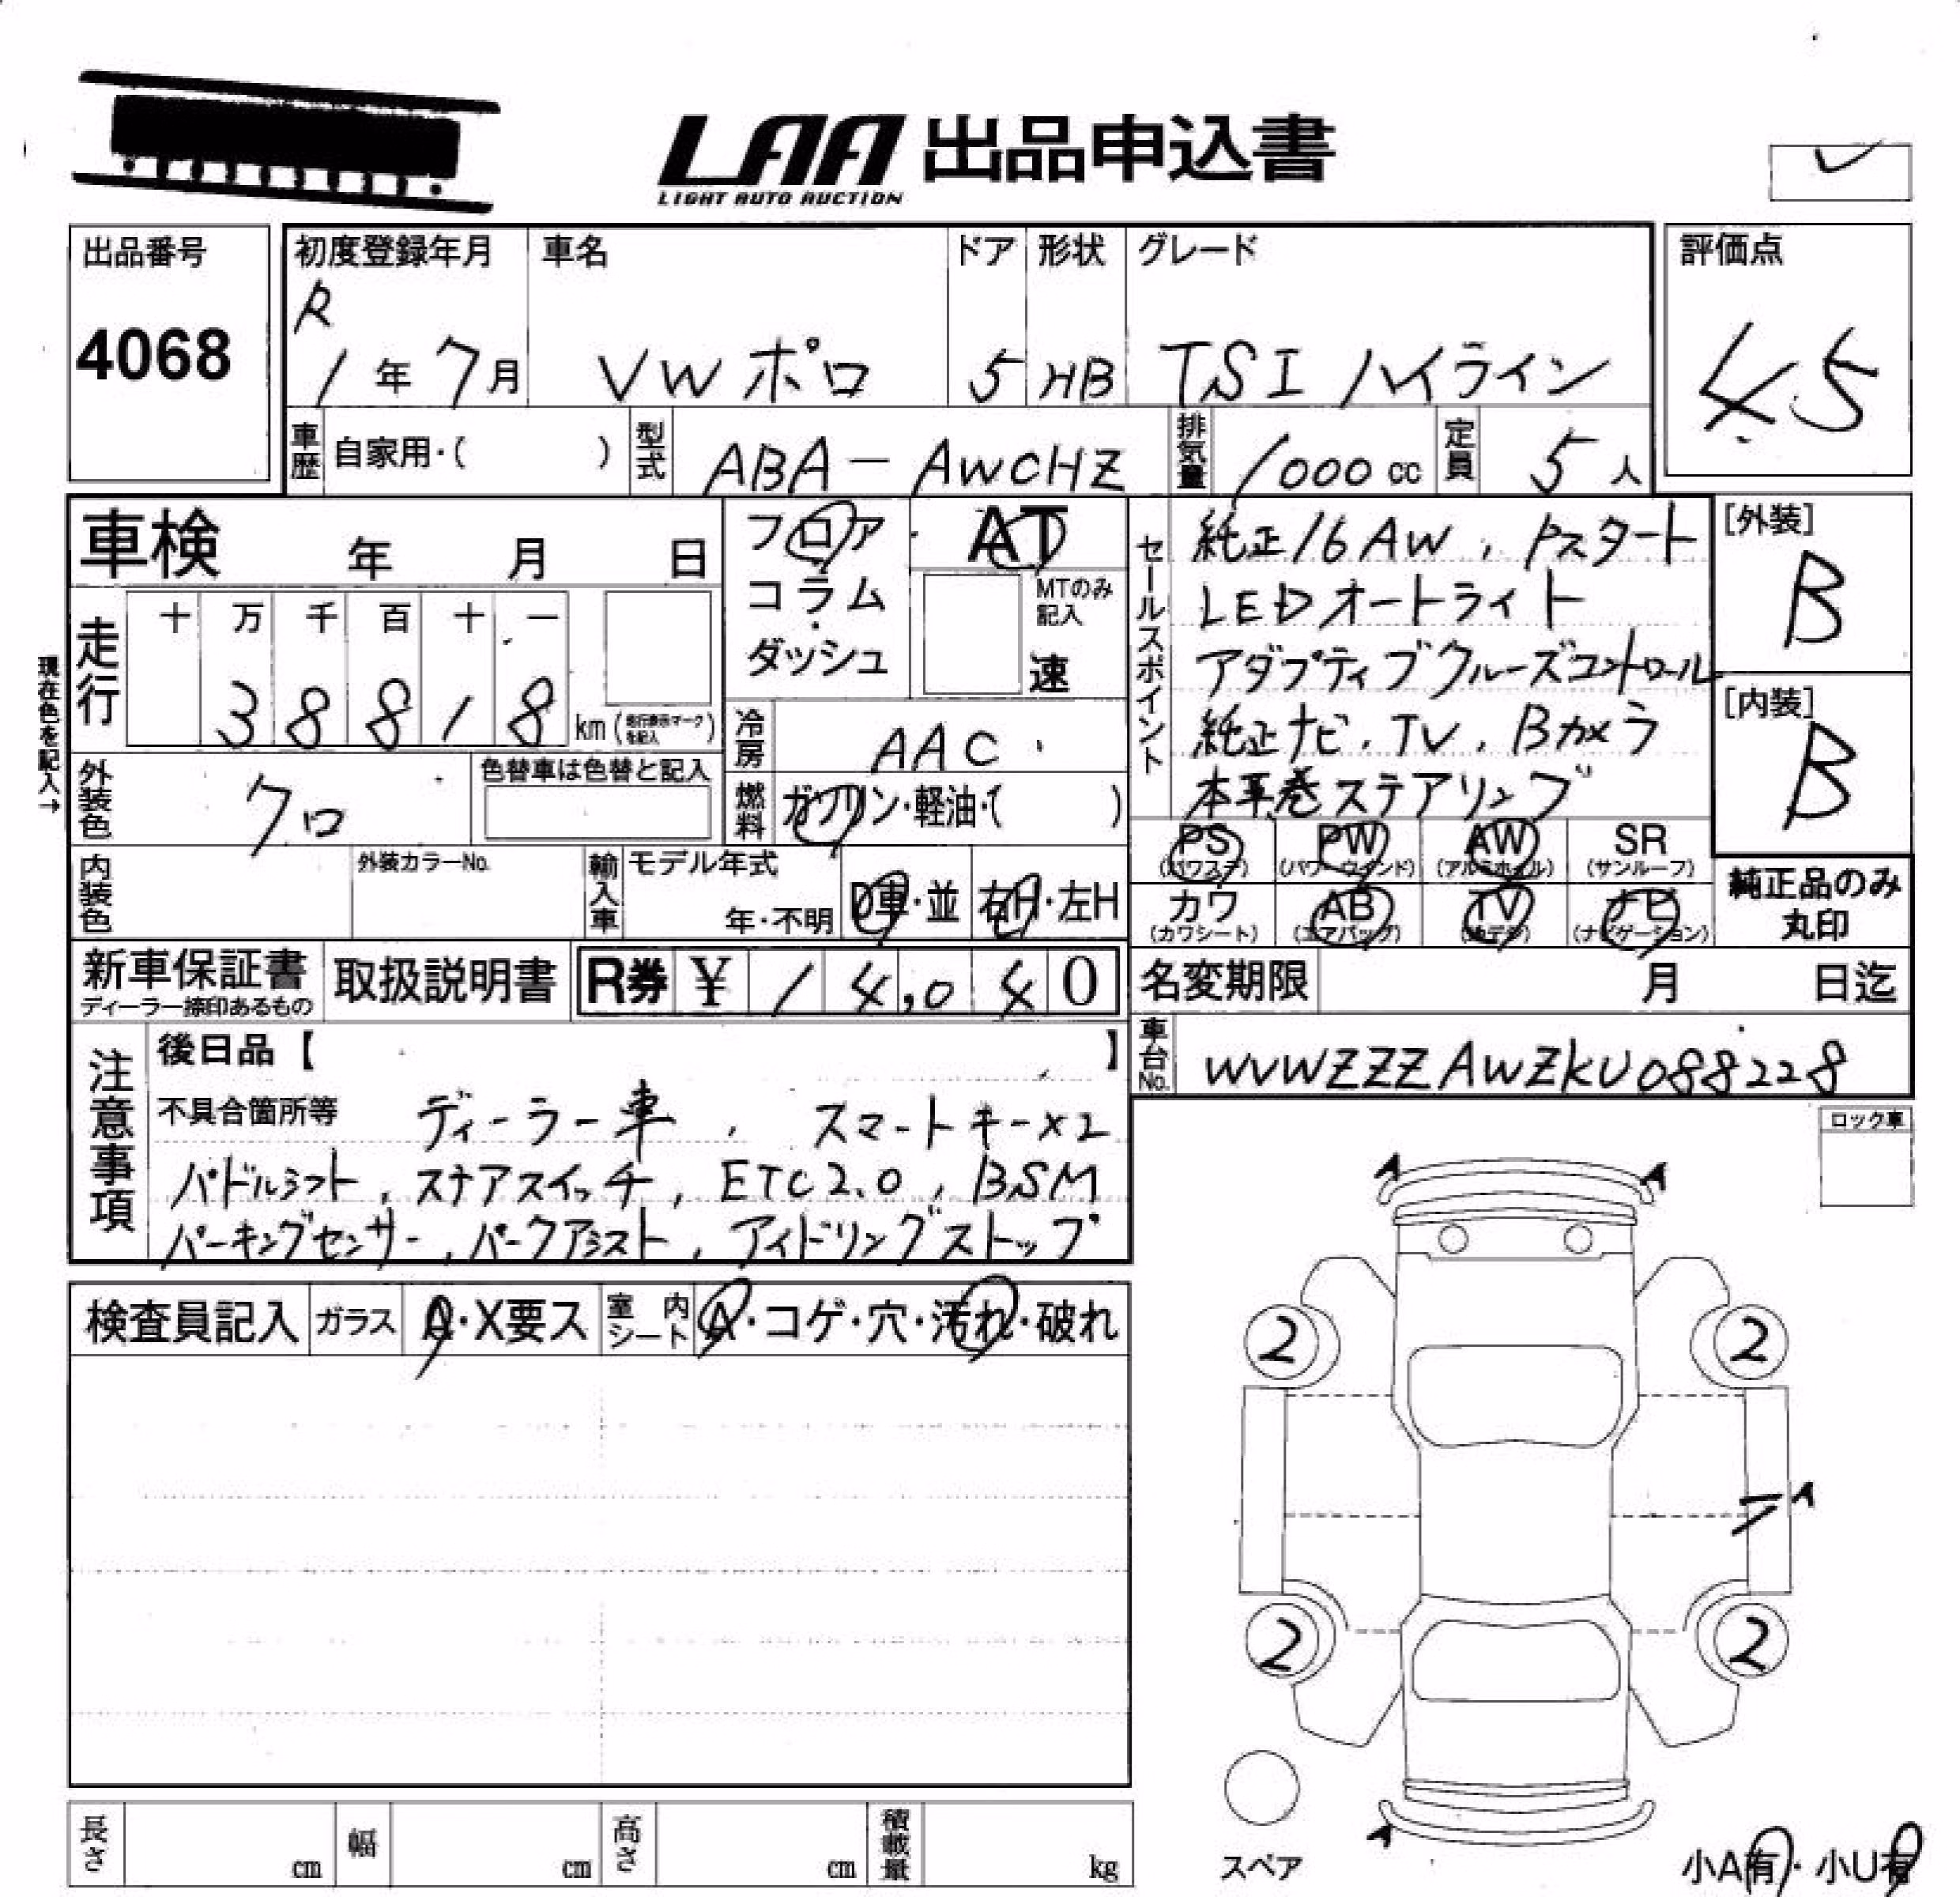 LAA 出品申込書
LIGHT AUTO AUCTION
出品番号
4068
初度登録年月
R
1年7月
車名
VW ポロ
ドア
5
形状
HB
グレード
TSI ハイライン
評価点
4.5
車歴 自家用・( )
型式 ABA-AWCHZ
排気量 1000cc
定員 5人
車検 年 月 日
フロア
コラム
ダッシュ
AT
MTのみ
記入
速
現在色を記入→
走行
十 万 千 百 十 一
3 8 8 1 8 km
冷房 AAC
燃料 ガソリン・軽油・( )
外装色 クロ
色替車は色替と記入
内装色
外装カラーNo.
輸入車
モデル年式
年・不明
D車・並
右H・左H
セールスポイント
純正16AW, Pスタート
LEDオートライト
アダプティブクルーズコントロール
純正ナビ, TV, Bカメラ
本革巻ステアリング
[外装]
B
[内装]
B
PS
(パワステ)
PW
(パワーウインド)
AW
(アルミホイル)
SR
(サンルーフ)
カワ
(カワシート)
AB
(エアバッグ)
TV
ナビ
(ナビゲーション)
純正品のみ
丸印
新車保証書
ディーラー捺印あるもの
取扱説明書
R券 ¥ 14,040
名変期限 月 日迄
車台No. WVWZZZAWZKU088228
注意事項
後日品【 】
不具合箇所等 ディーラー車, スマートキー×2
パドルシフト, ステアスイッチ, ETC2.0, BSM
パーキングセンサー, パークアシスト, アイドリングストップ
ロック車
検査員記入
ガラス A・X要ス
室内シート A・コゲ・穴・汚れ・破れ
A A
2 2
A
2 2
A
スペア
小A有・小U有
長さ cm
幅 cm
高さ cm
積載量 kg